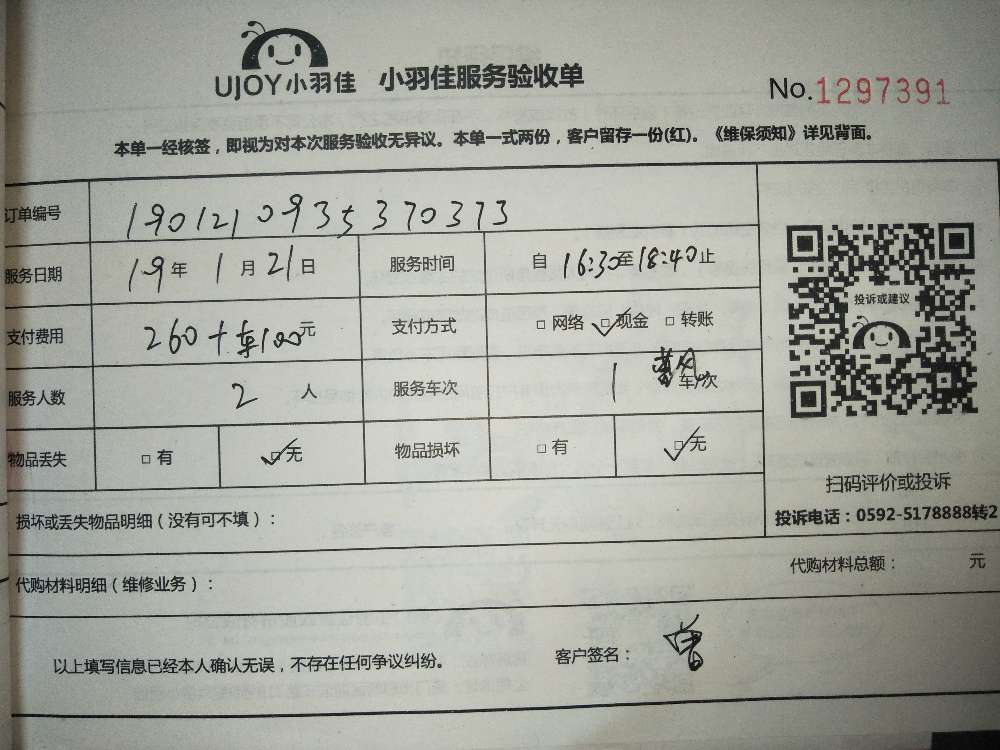 UJOY小羽佳 小羽佳服务验收单
No.1297391
本单一经核签，即视为对本次服务验收无异议。本单一式两份，客户留存一份(红)。《维保须知》详见背面。
订单编号 1901210935370373
服务日期 19年1月21日 服务时间 自16:30至18:40止
投诉或建议
支付费用 260+车100元 支付方式 □网络 □现金 □转账
服务人数 2人 服务车次 1 车次
物品丢失 □有 □无 物品损坏 □有 □无
扫码评价或投诉
投诉电话：0592-5178888转2
损坏或丢失物品明细（没有可不填）：
代购材料明细（维修业务）： 代购材料总额： 元
以上填写信息已经本人确认无误，不存在任何争议纠纷。 客户签名：